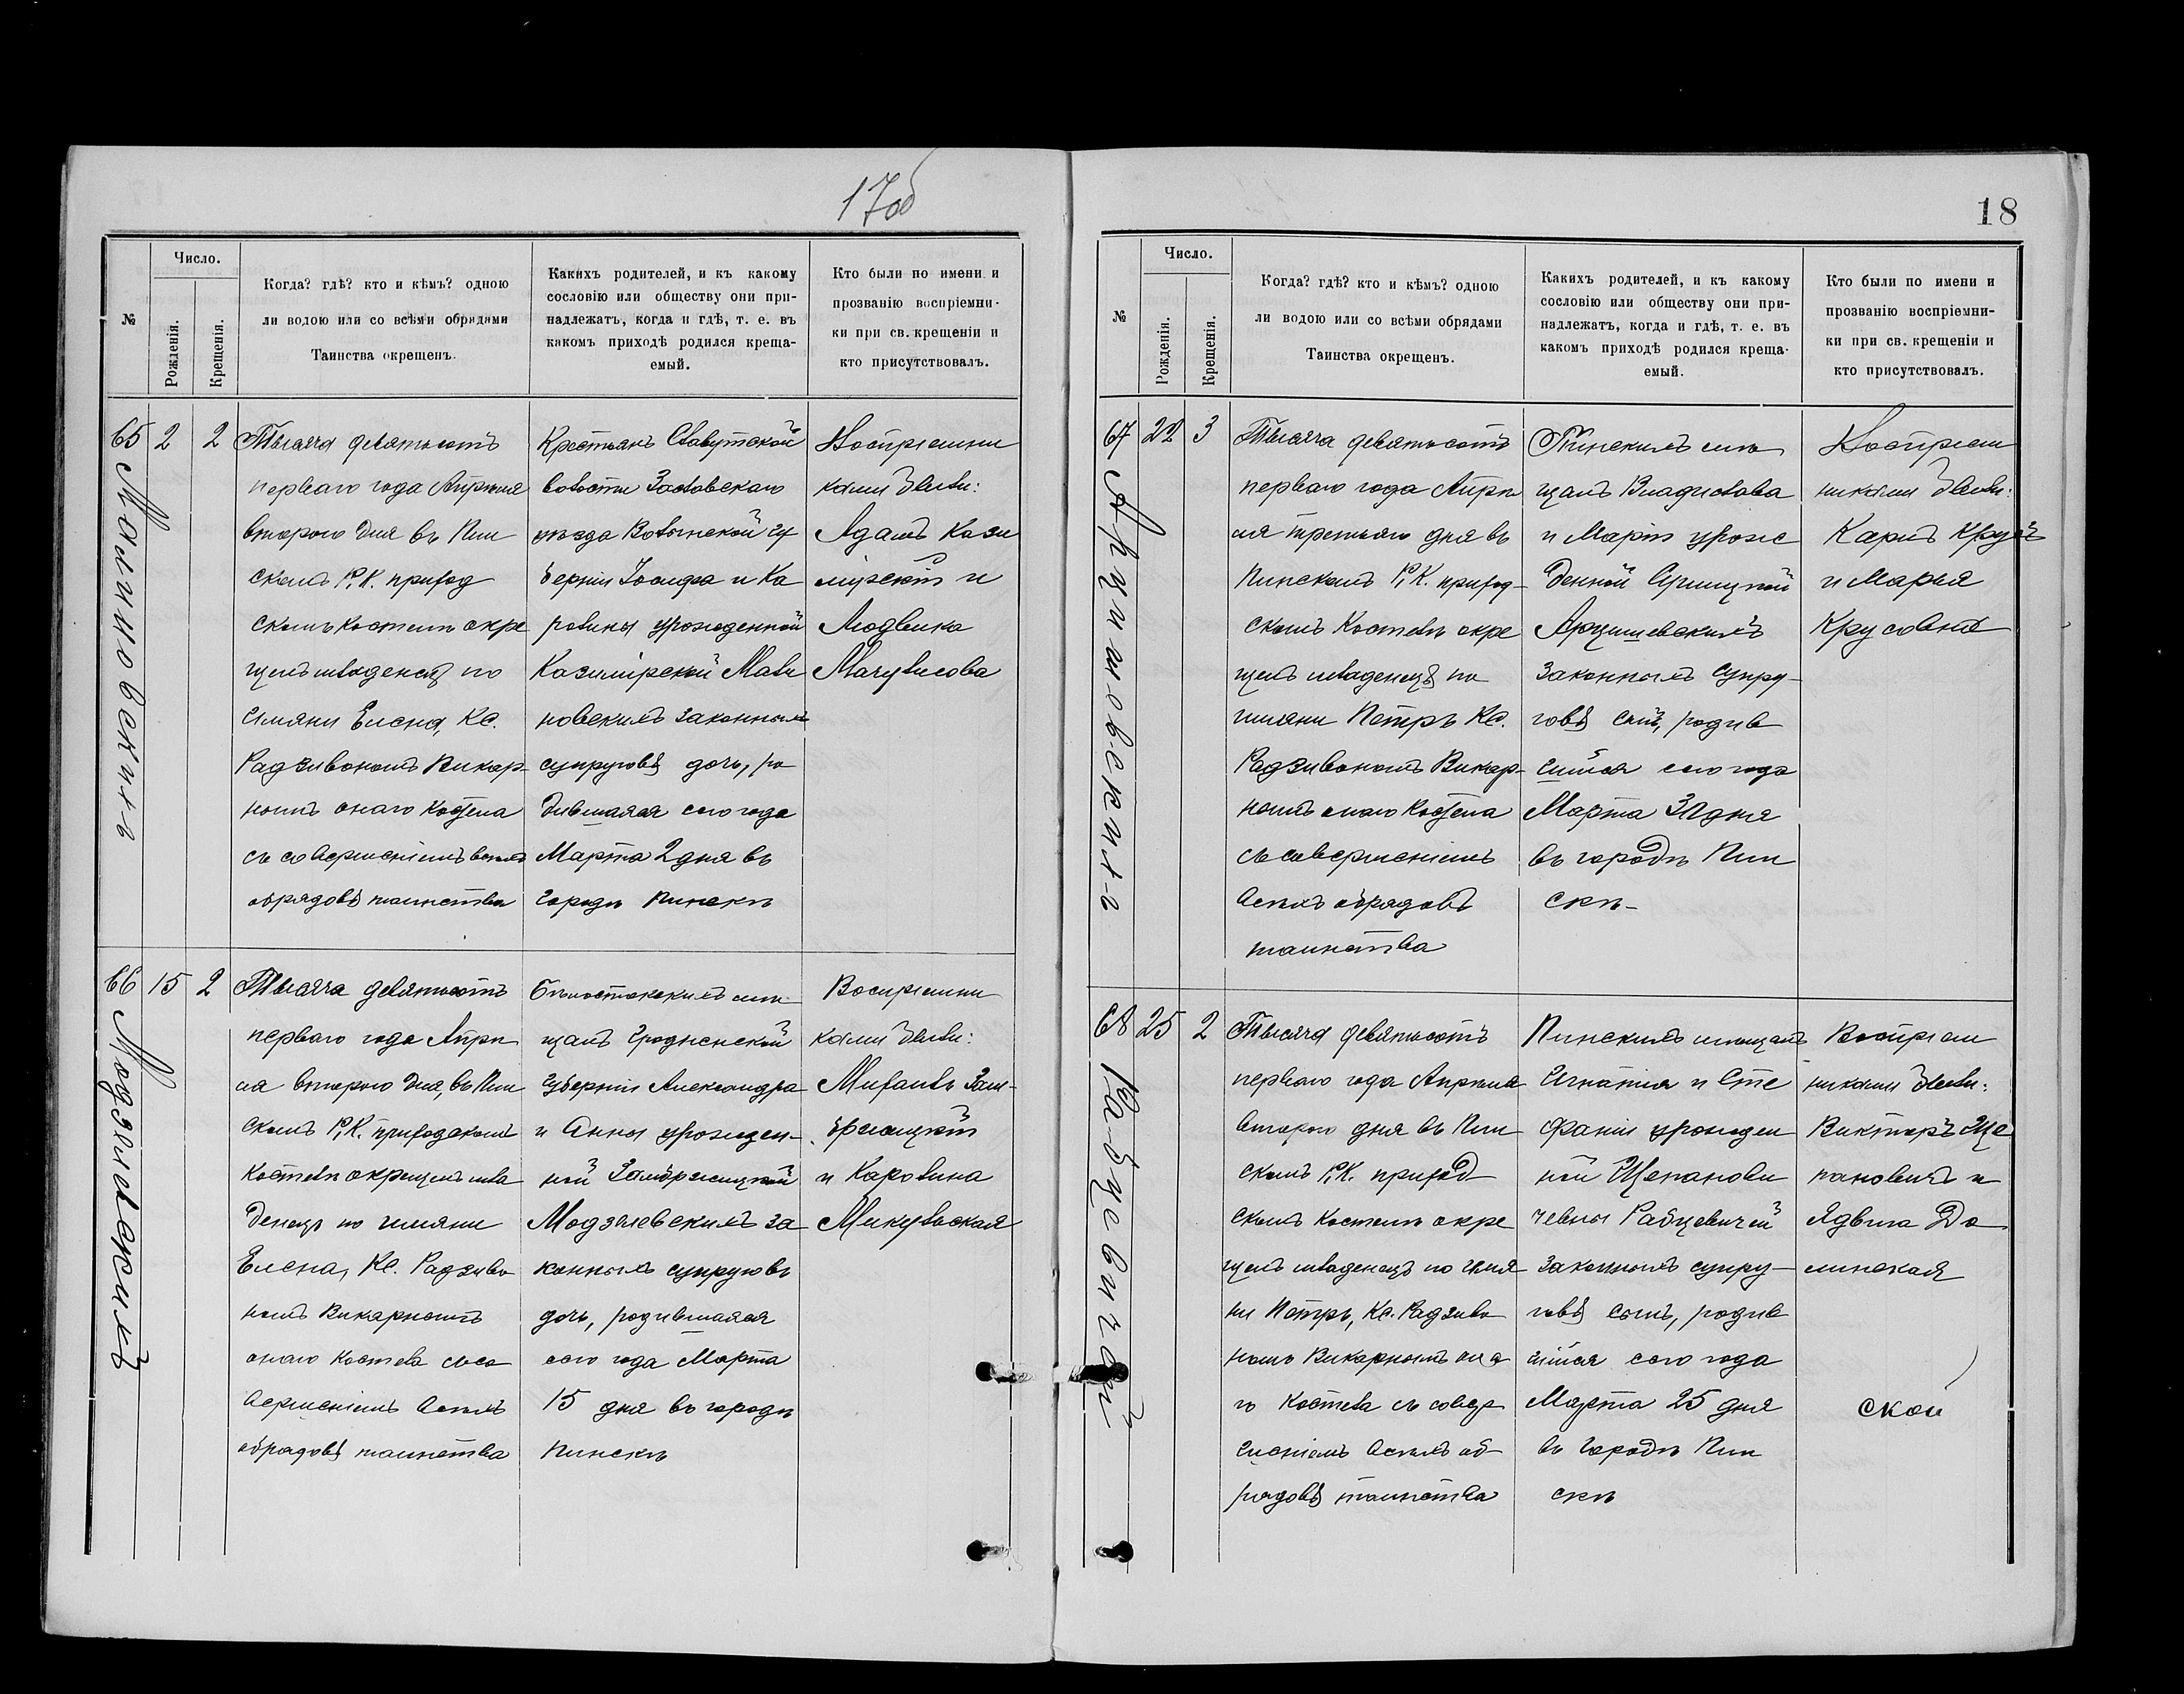 17об
Число.
№
Рожденія.
Крещенія.
Когда? гдѣ? кто и кѣмъ? одною
ли водою или со всѣми обрядами
Таинства окрещенъ.
Какихъ родителей, и къ какому
сословію или обществу они при-
надлежатъ, когда и гдѣ, т. е. въ
какомъ приходѣ родился креща-
емый.
Кто были по имени и
прозванію воспріемни-
ки при св. крещеніи и
кто присутствовалъ.
65
2
2
Тысяча девятьсотъ
перваго года Апрѣля
втораго дня въ Пин
скомъ Р. К. приход
скомъ костелѣ окре
щенъ младенецъ по
имяни Елена, Кс.
Радзивономъ Викар
нымъ онаго костела
съ совершеніемъ всѣхъ
обрядовъ таинства
Крестьянъ Славутской
волости Заславскаго
уѣзда Волынской гу
берніи Іосифа и Ка
ролины урожденной
Казимірской Мали
новскихъ законныхъ
супруговъ дочь, ро
дившаяся сего года
Марта 2 дня въ
городѣ Пинскѣ
Воспріемни
ками были:
Адамъ Кази
мірскій и
Людвика
Мачулисова
66
15
2
Модзелевскихъ
Тысяча девятьсотъ
перваго года Апрѣ
ля втораго дня, въ Пин
скомъ Р. К. приходскомъ
костелѣ окрещенъ мла
денецъ по имяни
Елена, Кс. Радзиво
номъ Викарнымъ
онаго костела съ со
вершеніемъ всѣхъ
обрядовъ таинства
Бѣлостокскихъ мѣ
щанъ Гродненской
губерніи Александра
и Анны урожден-
ной Замбржицкой
Модзелевскихъ за
конныхъ супруговъ
дочь, родившаяся
сего года Марта
15 дня въ городѣ
Пинскѣ
Воспріемни
ками были:
Михаилъ Зам-
бржицкій
и Каролина
Микульская
18
Число.
№
Рожденія.
Крещенія.
Когда? гдѣ? кто и кѣмъ? одною
ли водою или со всѣми обрядами
Таинства окрещенъ.
Какихъ родителей, и къ какому
сословію или обществу они при-
надлежатъ, когда и гдѣ, т. е. въ
какомъ приходѣ родился креща-
емый.
Кто были по имени и
прозванію воспріемни-
ки при св. крещеніи и
кто присутствовалъ.
67
22
3
Арцишевскихъ
Тысяча девятьсотъ
перваго года Апрѣ
ля третьяго дня въ
Пинскомъ Р. К. приход-
скомъ костелѣ окре
щенъ младенецъ по
имяни Петръ Кс.
Радзивономъ Викар-
нымъ онаго костела
съ совершеніемъ
всѣхъ обрядовъ
таинства
Пинскихъ мѣ
щанъ Владислава
и Маріи урож
денной
Арцишевскихъ
законныхъ супру-
говъ сынъ, родив
шійся сего года
Марта дня
въ городѣ Пин
скѣ-
Воспріем
никами были:
Карлъ
и Марья
68
25
2
Рабцевичей
Тысяча девятьсотъ
перваго года Апрѣля
втораго дня въ Пин
скомъ Р. К. приход
скомъ костелѣ окре
щенъ младенецъ по имя
ни Петръ, Кс. Радзиво
номъ Викарнымъ она
го костела съ совер
шеніемъ всѣхъ об-
рядовъ таинства
Пинскихъ мѣщанъ
Игнатія и Сте
фаніи урожден
ной Щепанови
чевны Рабцевичей
законныхъ супру-
говъ сынъ, родив
шійся сего года
Марта 25 дня
въ городѣ Пин
скѣ
Воспріем
никами были:
Викторъ Ще
пановичъ и
Ядвига До
линская
ской